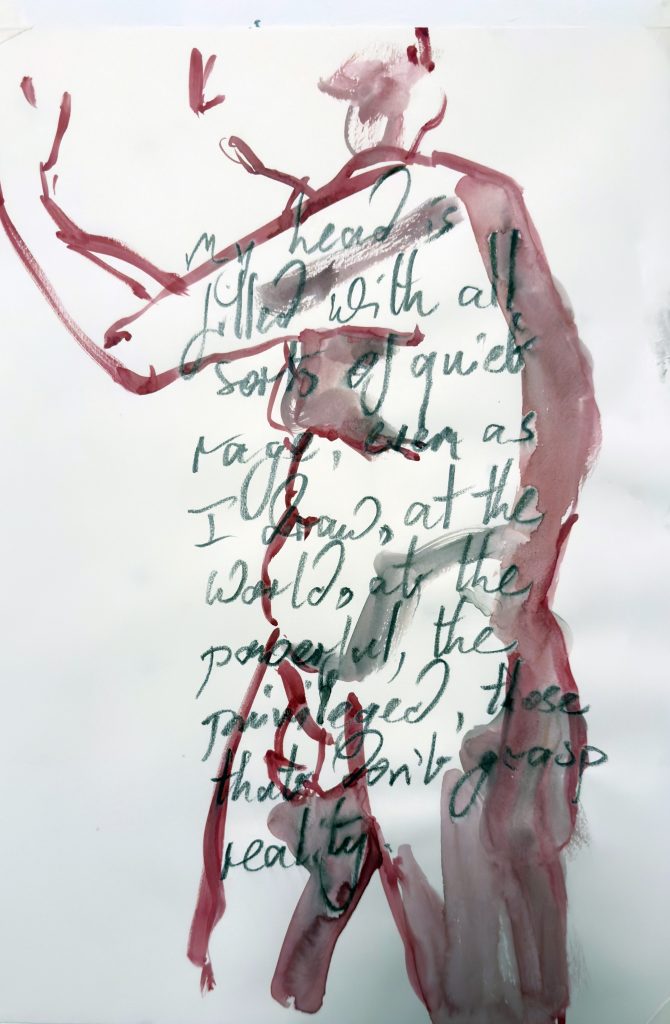 my head is
filled with all
sorts of quiet
rage, even as
I draw, at the
world, at the
powerful, the
privileged, those
that don't grasp
reality.